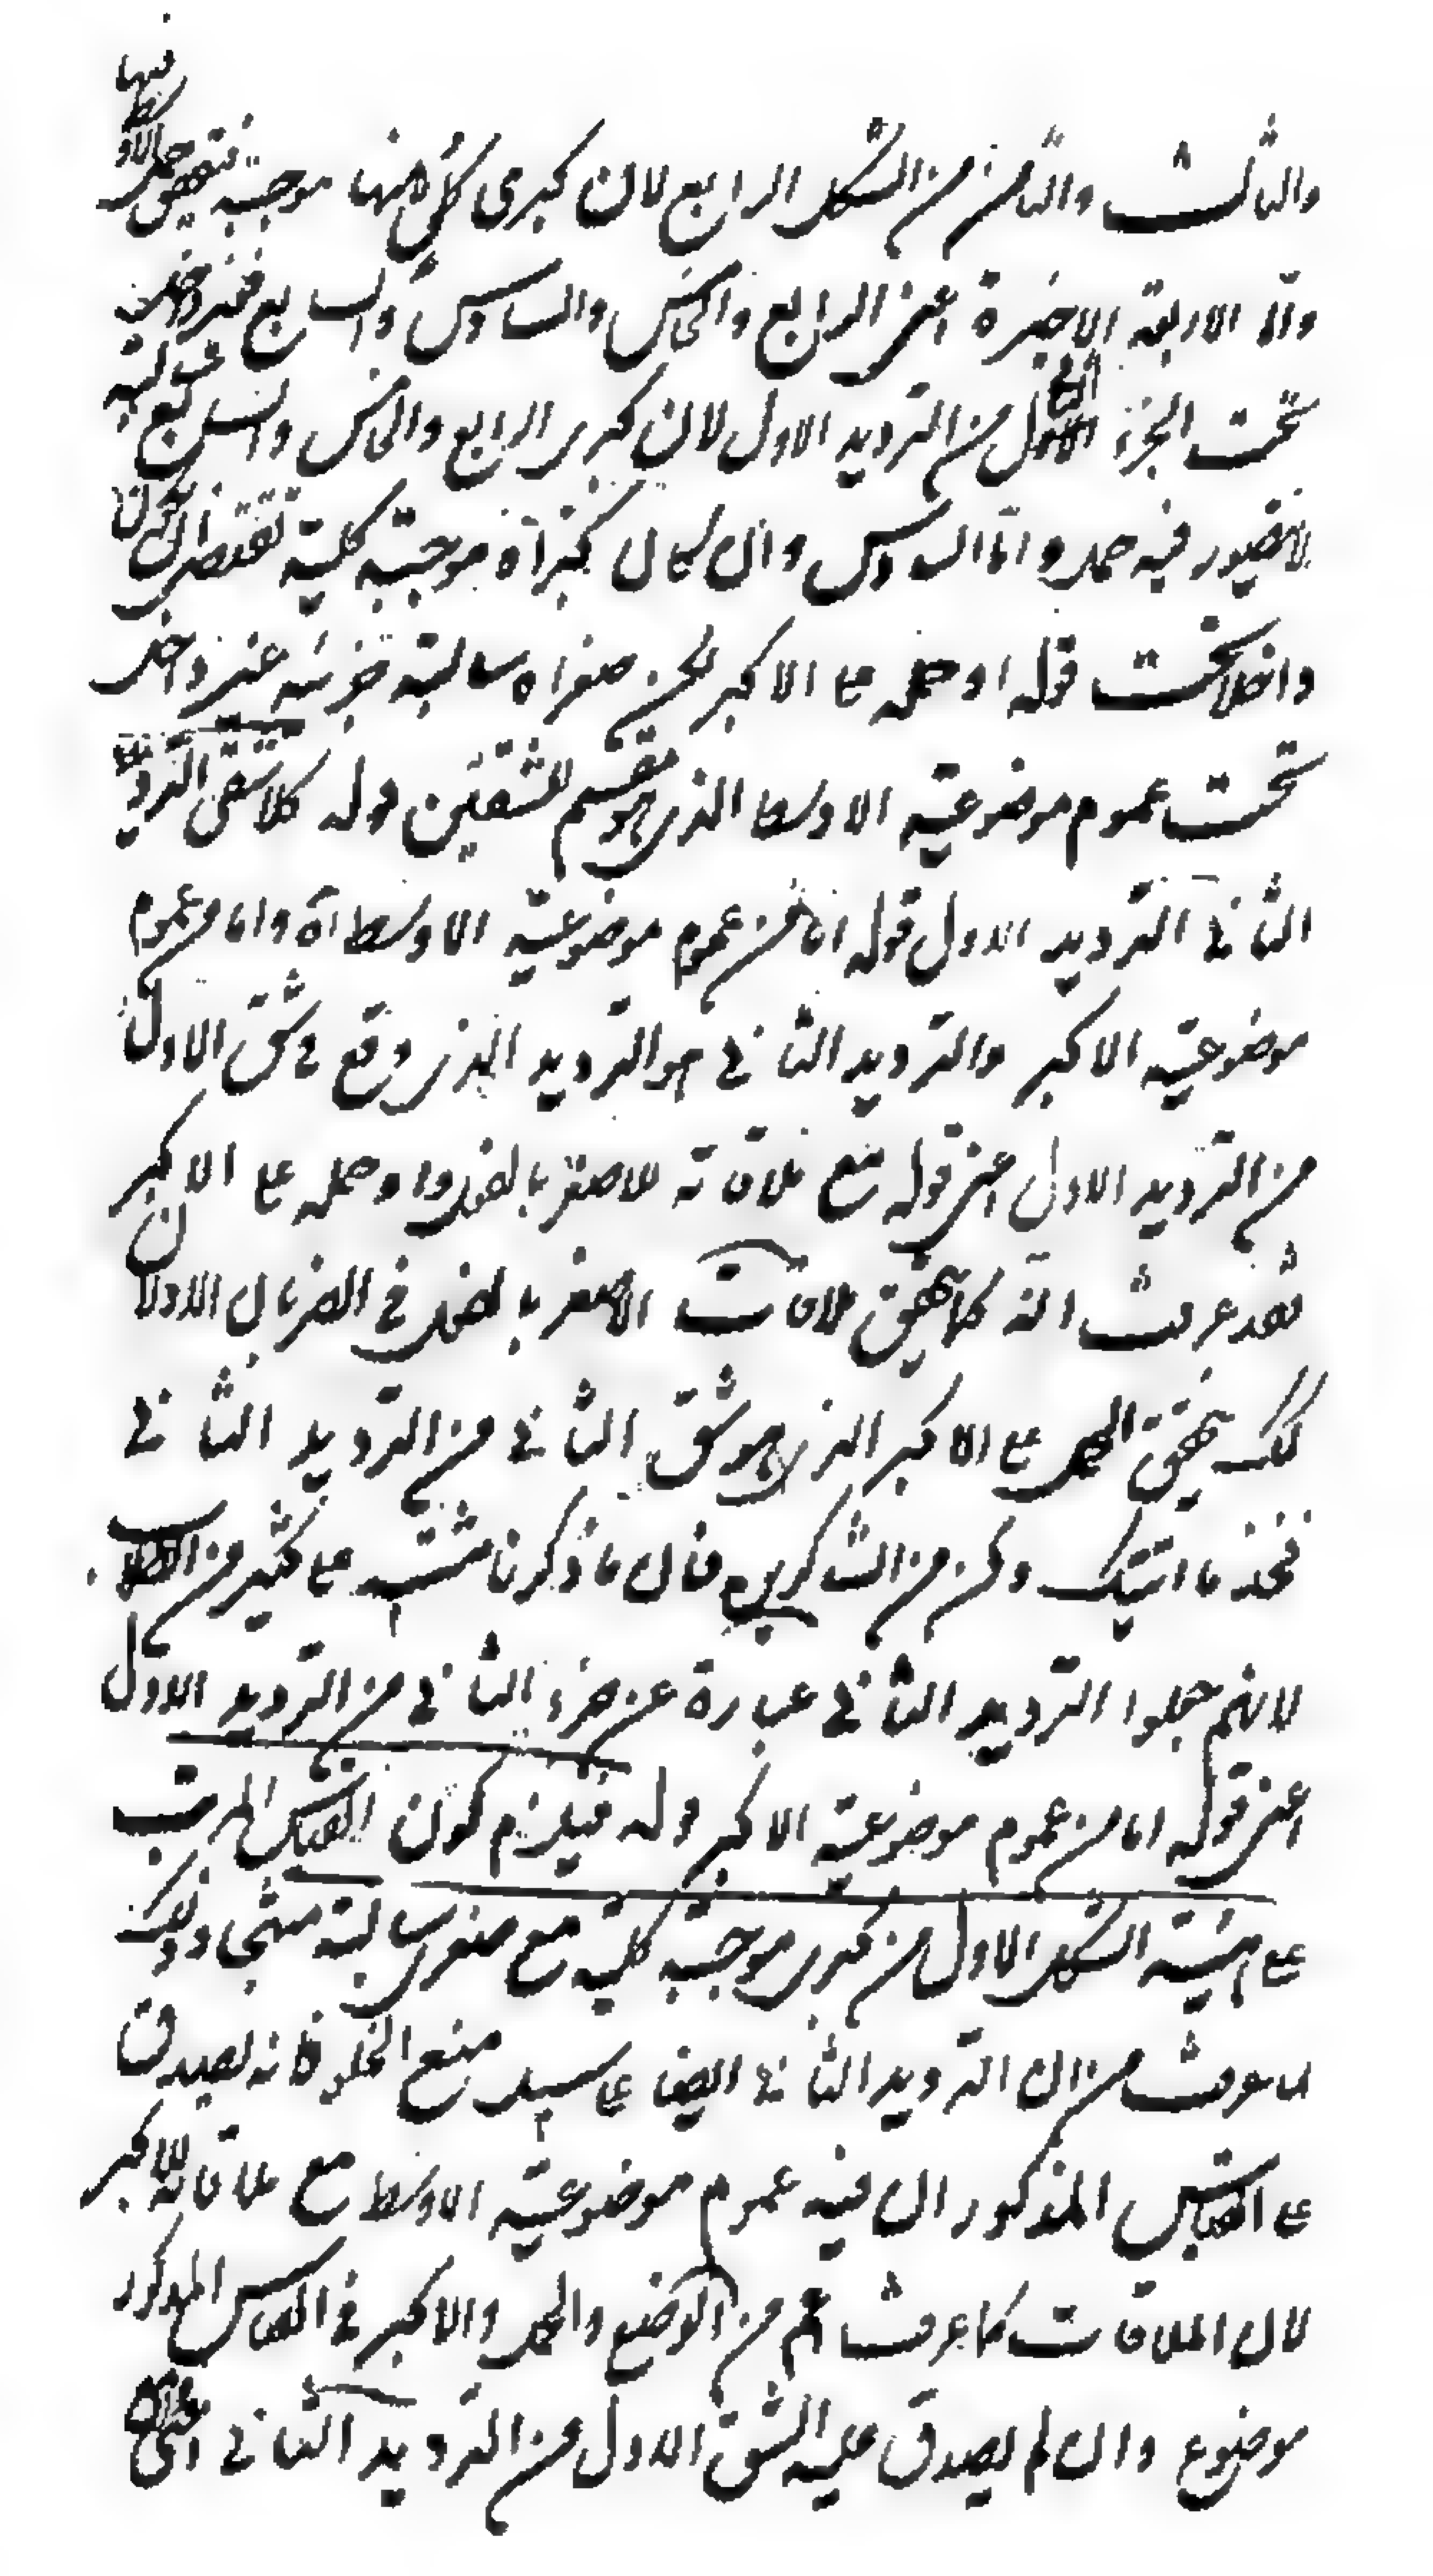 والثالث والثامن من الشكل الرابع لان كبرى كل منها موجبة فتحقق حمل الاوسط فيها
واما الاربعة الاخيرة اعنى الرابع والخامس والسادس والسابع فغير داخلية
تحت الجزء الاول من الترديد الاول لان كبرى الرابع والخامس والسابع سالبة
لا يتصور فيه حمل واما السادس وان كان كبراه موجبة كلية تقتضى ان يكون
داخلا تحت قوله او حمله على الاكبر لكن صغراه سالبة جزئية غير داخل
تحت عموم موضوعية الاوسط الذى هو مقسم للشقين قوله كلا شقى الترديد
الثانى الترديد الاول قوله اما من عموم موضوعية الاوسط آه واما من عموم
موضوعية الاكبر والترديد الثانى هو الترديد الذى وقع فى شق الاول
من الترديد الاول اعنى قوله مع ملاقاته للاصغر بالفعل او حمله على الاكبر
فقد عرفت انه كما تحقق ملاقات الاصغر بالفعل فى الضربان الاولان
كذلك تحقق الحمل على الاكبر الذى هو شق الثانى من الترديد الثانى
فخذ ما اتيتك وكن من الشاكرين فان ما ذكرنا مشتبه على كثير من الطلاب
لانهم جعلوا الترديد الثانى عبارة عن جزء الثانى من الترديد الاول
اعنى قوله اما من عموم موضوعية الاكبر قوله فيلزم كون القياس المرتب
على هيئة الشكل الاول من كبرى موجبة كلية مع صغرى سالبة منتجا وذلك
لما عرفت من ان الترديد الثانى ايضا على سبيل منع الخلو فانه يصدق
على القياس المذكور ان فيه عموم موضوعية الاوسط مع ملاقاته للاكبر
لان الملاقات كما عرفت اعم من الوضع والحمل والاكبر فى القياس المذكور
موضوع وان لم يصدق عليه الشق الاول من الترديد الثانى اعنى